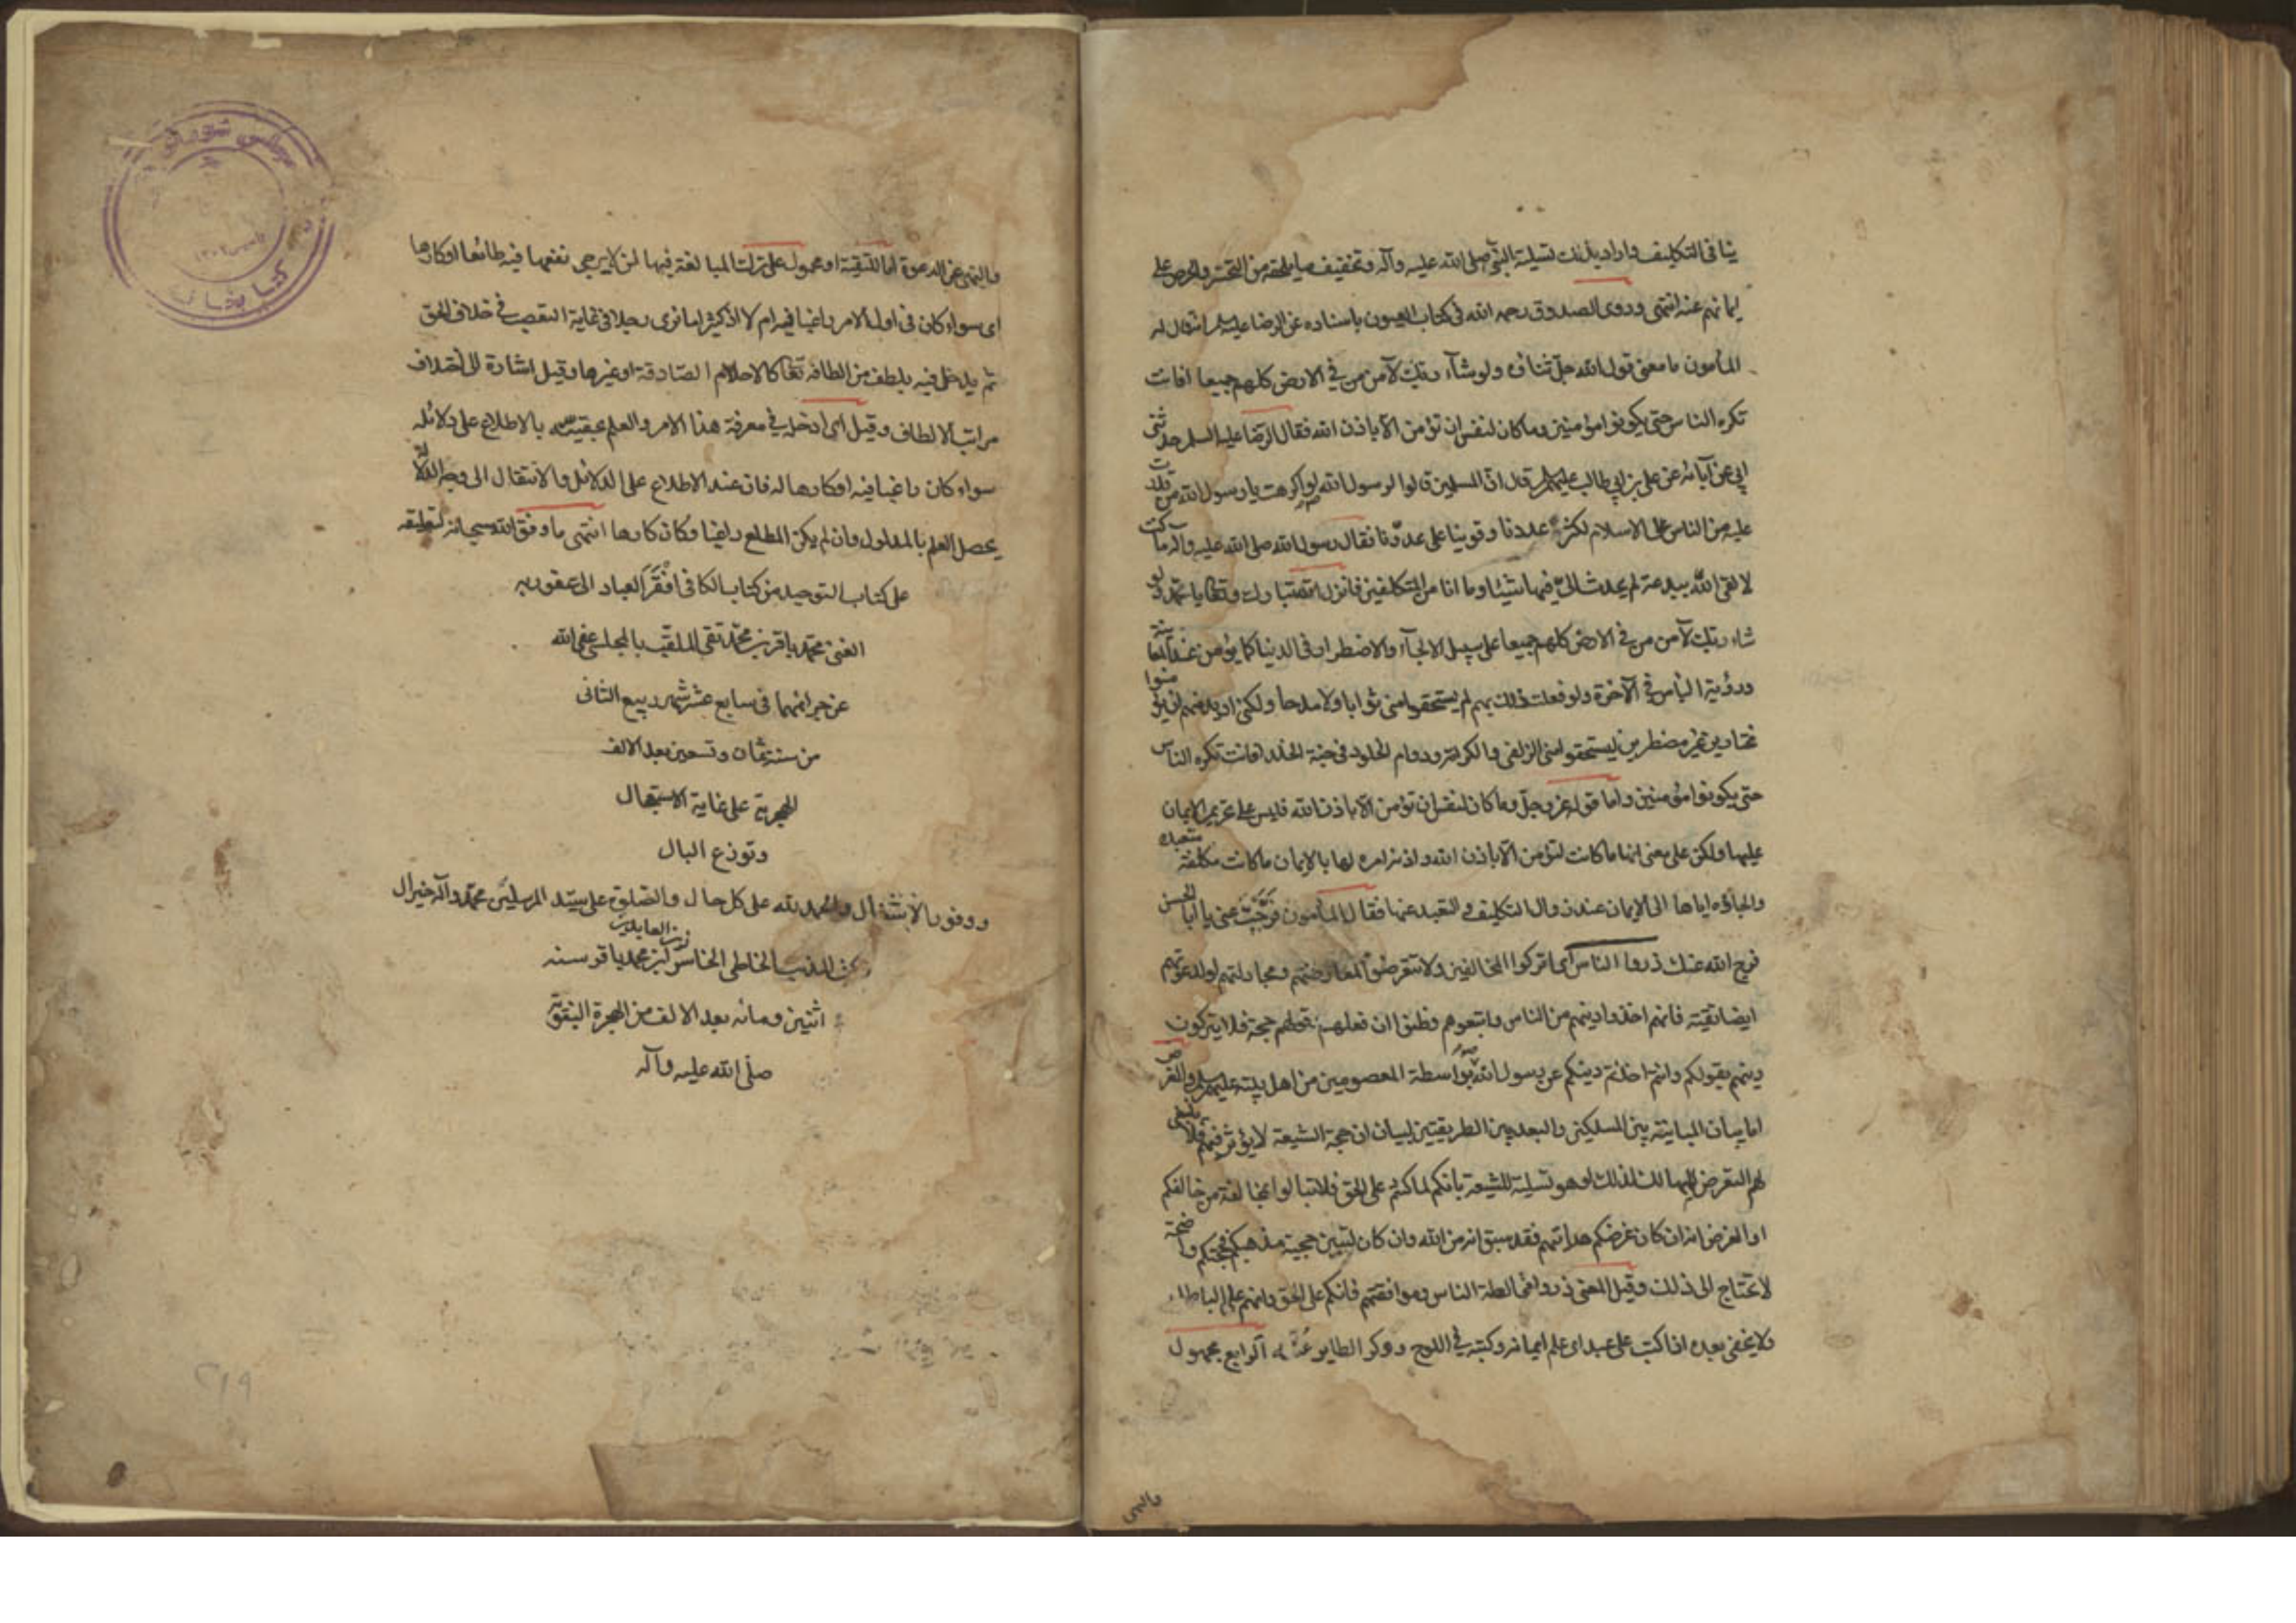 ينافى التكليف واراد بذلك تسلية النبي صلى الله عليه وآله وتخفيف ما يلحقه من التحسر والحرص على
ايمانهم عنه انتهى وروى الصدوق رحمه الله فى كتاب العيون باسناده عن الرضا عليه السلم انه قال له
المأمون ما معنى قول الله جل ثناؤه ولو شآء ربك لآمن من فى الارض كلهم جميعا افانت
تكره الناس حتى يكونوا مؤمنين وما كان لنفس ان تؤمن الا باذن الله فقال الرضا عليه السلم حدثنى
ابى عن آبائه عن على بن ابى طالب عليهم قال ان المسلمين قالوا لرسول الله لو اكرهت يا رسول الله من قدرت
عليه من الناس على الاسلام لكثر عددنا وقوينا على عدونا فقال رسول الله صلى الله عليه وآله ما كنت
لالقى الله ببدعة لم يحدث الىّ فيها شيئا وما انا من المتكلفين فانزل الله تبارك وتعالى يا محمد ولو
شاء ربك لآمن من فى الارض كلهم جميعا على سبيل الالجآء والاضطرار فى الدنيا كما يؤمن عند المعاينة
ورؤية البأس فى الآخرة ولو فعلت ذلك بهم لم يستحقوا منى ثوابا ولا مدحا ولكنى اريد منهم ان يؤمنوا
مختارين غير مضطرين ليستحقوا منى الزلفى والكرامة ودوام الخلود فى جنة الخلد افانت تكره الناس
حتى يكونوا مؤمنين واما قوله عز وجل وما كان لنفس ان تؤمن الا باذن الله فليس على تحريم الايمان
عليها ولكن على معنى انها ما كانت لتؤمن الا باذن الله واذنه امره لها بالايمان ما كانت مكلفة متعبدة
والجاؤه اياها الى الايمان عند زوال التكليف والتعبد عنها فقال المأمون فرّجت عنى يا ابا الحسن
فرج الله عنك ذروا الناس اى اتركوا المخالفين ولا تتعرضوا لمعارضتهم ومجادلتهم او لدعوتهم
ايضا تقية فانهم اخذوا دينهم من الناس واتبعوهم وظنوا ان فعلهم وقولهم حجة فلا يتركون
دينهم بقولكم وانتم اخذتم دينكم عن رسول الله بواسطة المعصومين من اهل بيته عليهم والغرض
اما بيان المباينة بين المسلكين والبعد بين الطريقين لبيان ان حجة الشيعة لا يؤثر فيهم فلا ينبغى
لهم التعرض للمهالك لذلك او هو تسلية للشيعة بانكم لما كنتم على الحق فلا تبالوا بمخالفة من خالفكم
او الغرض انه ان كان غرضكم هدايتهم فقد سبق انه من الله وان كان لتبيين حجية مذهبكم فحجتكم واضحة
لا تحتاج الى ذلك وقيل المعنى ذروا مخالطة الناس وموافقتهم فانكم على الحق وانهم على الباطل
ولا يخفى بعده اذا كتب على عبد اى علم ايمانه وكتبه فى اللوح ووكر الطاير عُشّه الرابع مجهول
والنهى
والنهى عن الدعوة اما للتقية او محمول على ترك المبالغة فيها لمن لا يرجى نفعها فيه طائعا او كارها
اى سواء كان فى اول الامر راغبا فيه ام لا اذ كثيرا ما نرى رجلا فى غاية التعصب فى خلاف الحق
ثم يدخل فيه بلطف من الطافه تعالى كالاحلام الصادقة او غيرها وقيل اشارة الى اختلاف
مراتب الالطاف وقيل اى ادخله فى معرفة هذا الامر والعلم بحقيته بالاطلاع على دلائله
سواء كان راغبا فيه او كارها له فان عند الاطلاع على الدلائل والانتقال الى وجه الدلالة
يحصل العلم بالمدلول وان لم يكن المطلع راغبا وكان كارها انتهى ما وفق الله سبحانه لتعليقه
على كتاب التوحيد من كتاب الكافى افقر العباد الى عفو ربه
الغنى محمد باقر بن محمد تقى الملقب بالمجلسى عفى الله
عن جرائمهما فى سابع عشر شهر ربيع الثانى
من سنة ثمان وتسعين بعد الالف
الهجرية على غاية الاستعجال
وتوزع البال
ووفور الاشتغال والحمد لله على كل حال والصلوة على سيد المرسلين محمد وآله خير آل
كتبه المذنب الخاطى الخاسر زين العابدين ابن محمد باقر سنه
اثنين ومائه بعد الالف من الهجرة النبوية
صلى الله عليه وآله
مجلس شوراى
كتابخانه